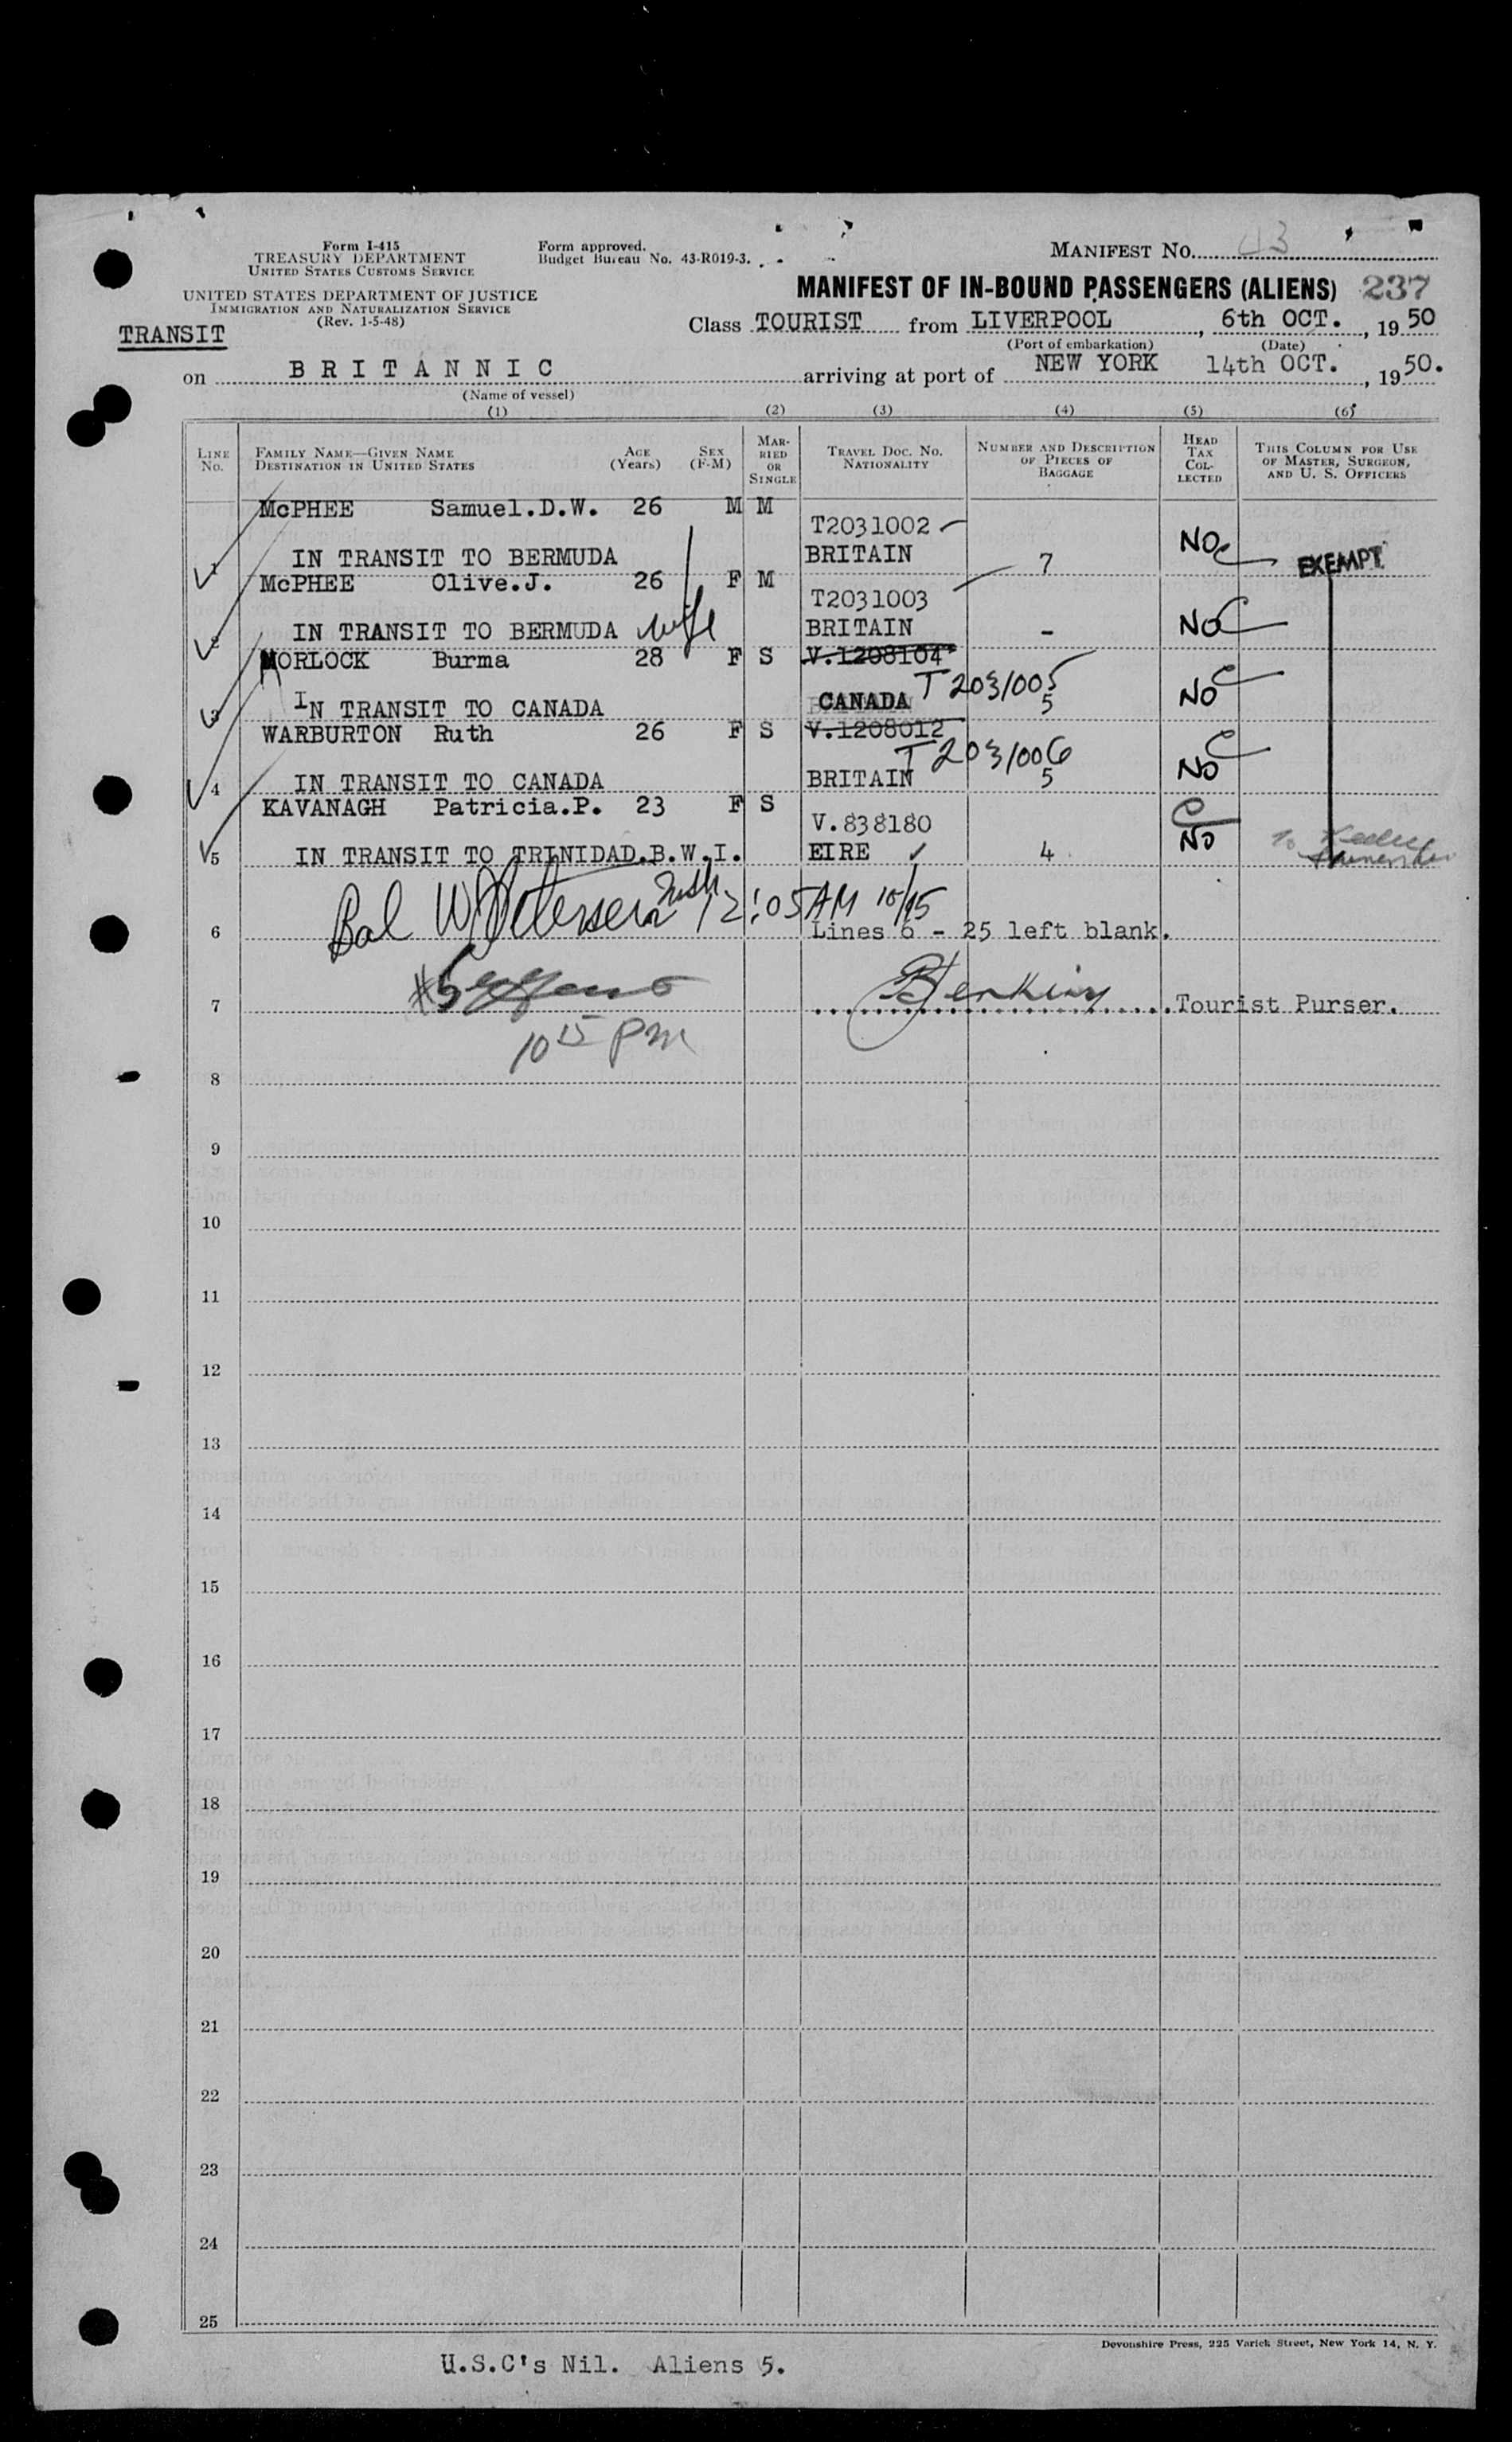 Form I-415
TREASURY DEPARTMENT
UNITED STATES CUSTOMS SERVICE
UNITED STATES DEPARTMENT OF JUSTICE
IMMIGRATION AND NATURALIZATION SERVICE
(Rev. 1-5-48)
TRANSIT
Form approved.
Budget Bureau No. 43-R019-3.
MANIFEST No. 43
MANIFEST OF IN-BOUND PASSENGERS (ALIENS) 237
Class TOURIST from LIVERPOOL, 6th OCT., 1950
(Port of embarkation) (Date)
on BRITANNIC arriving at port of NEW YORK 14th OCT., 1950.
(Name of vessel)
(1) (2) (3) (4) (5) (6)
LINE No. FAMILY NAME—GIVEN NAME DESTINATION IN UNITED STATES AGE (Years) SEX (F-M) MARRIED OR SINGLE TRAVEL DOC. No. NATIONALITY NUMBER AND DESCRIPTION OF PIECES OF BAGGAGE HEAD TAX COLLECTED THIS COLUMN FOR USE OF MASTER, SURGEON, AND U. S. OFFICERS
McPHEE Samuel.D.W. 26 M M T2031002
1 IN TRANSIT TO BERMUDA BRITAIN 7 NO EXEMPT
McPHEE Olive.J. 26 F M T2031003
2 IN TRANSIT TO BERMUDA wife BRITAIN - NO
MORLOCK Burma 28 F S V.1208104 T2031005
3 IN TRANSIT TO CANADA CANADA 5 NO
WARBURTON Ruth 26 F S V.1208012 T2031006
4 IN TRANSIT TO CANADA BRITAIN 5 NO
KAVANAGH Patricia.P. 23 F S V.838180
5 IN TRANSIT TO TRINIDAD.B.W.I. EIRE 4 NO
Bal W Petersen 12:05 AM 10/15
6 Lines 6 - 25 left blank.
#5
7 Jenkins Tourist Purser.
10 15 PM
8
9
10
11
12
13
14
15
16
17
18
19
20
21
22
23
24
25
Devonshire Press, 225 Varick Street, New York 14, N. Y.
U.S.C's Nil. Aliens 5.